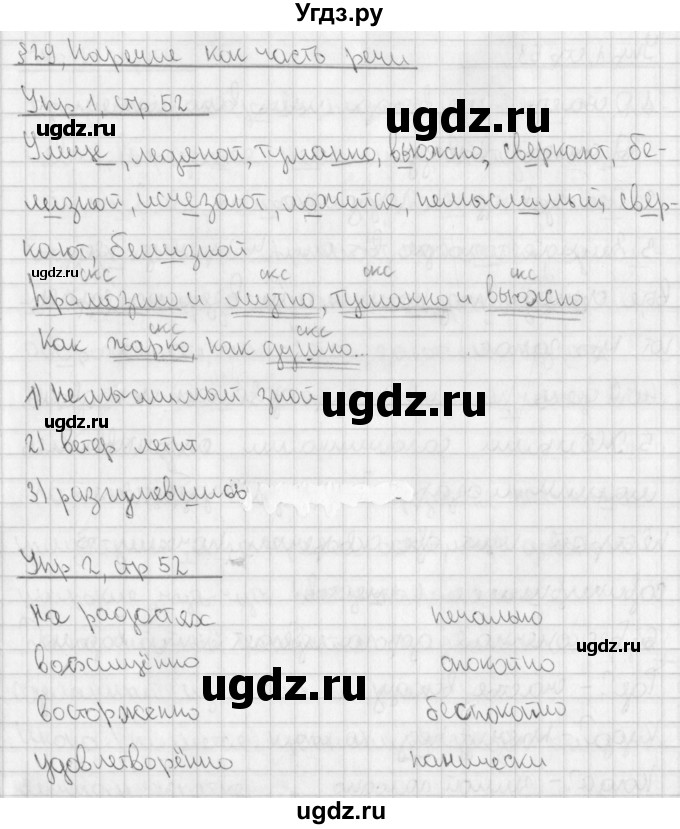 Угдз.ру
§29, Наречие как часть речи
ugdz.ru
Упр 1, стр 52
ugdz.ru
Улице, ледяной, туманно, вьюжно, сверкают, бе-
лизной, исчезают, ложится, немыслимый, свер-
кают, белизной
ugdz.ru
скс скс скс скс
Промозгло и мутно, туманно и вьюжно
скс скс
Как жарко, как душно...
1) Немыслимый зной
ugdz.ru
ugdz.ru
2) ветер летит
3) разгулявшись
Упр 2, стр 52
На радостях печально
ugdz.ru
восхищённо спокойно
ugdz.ru
восторженно беспокойно
удовлетворённо панически
ugdz.ru